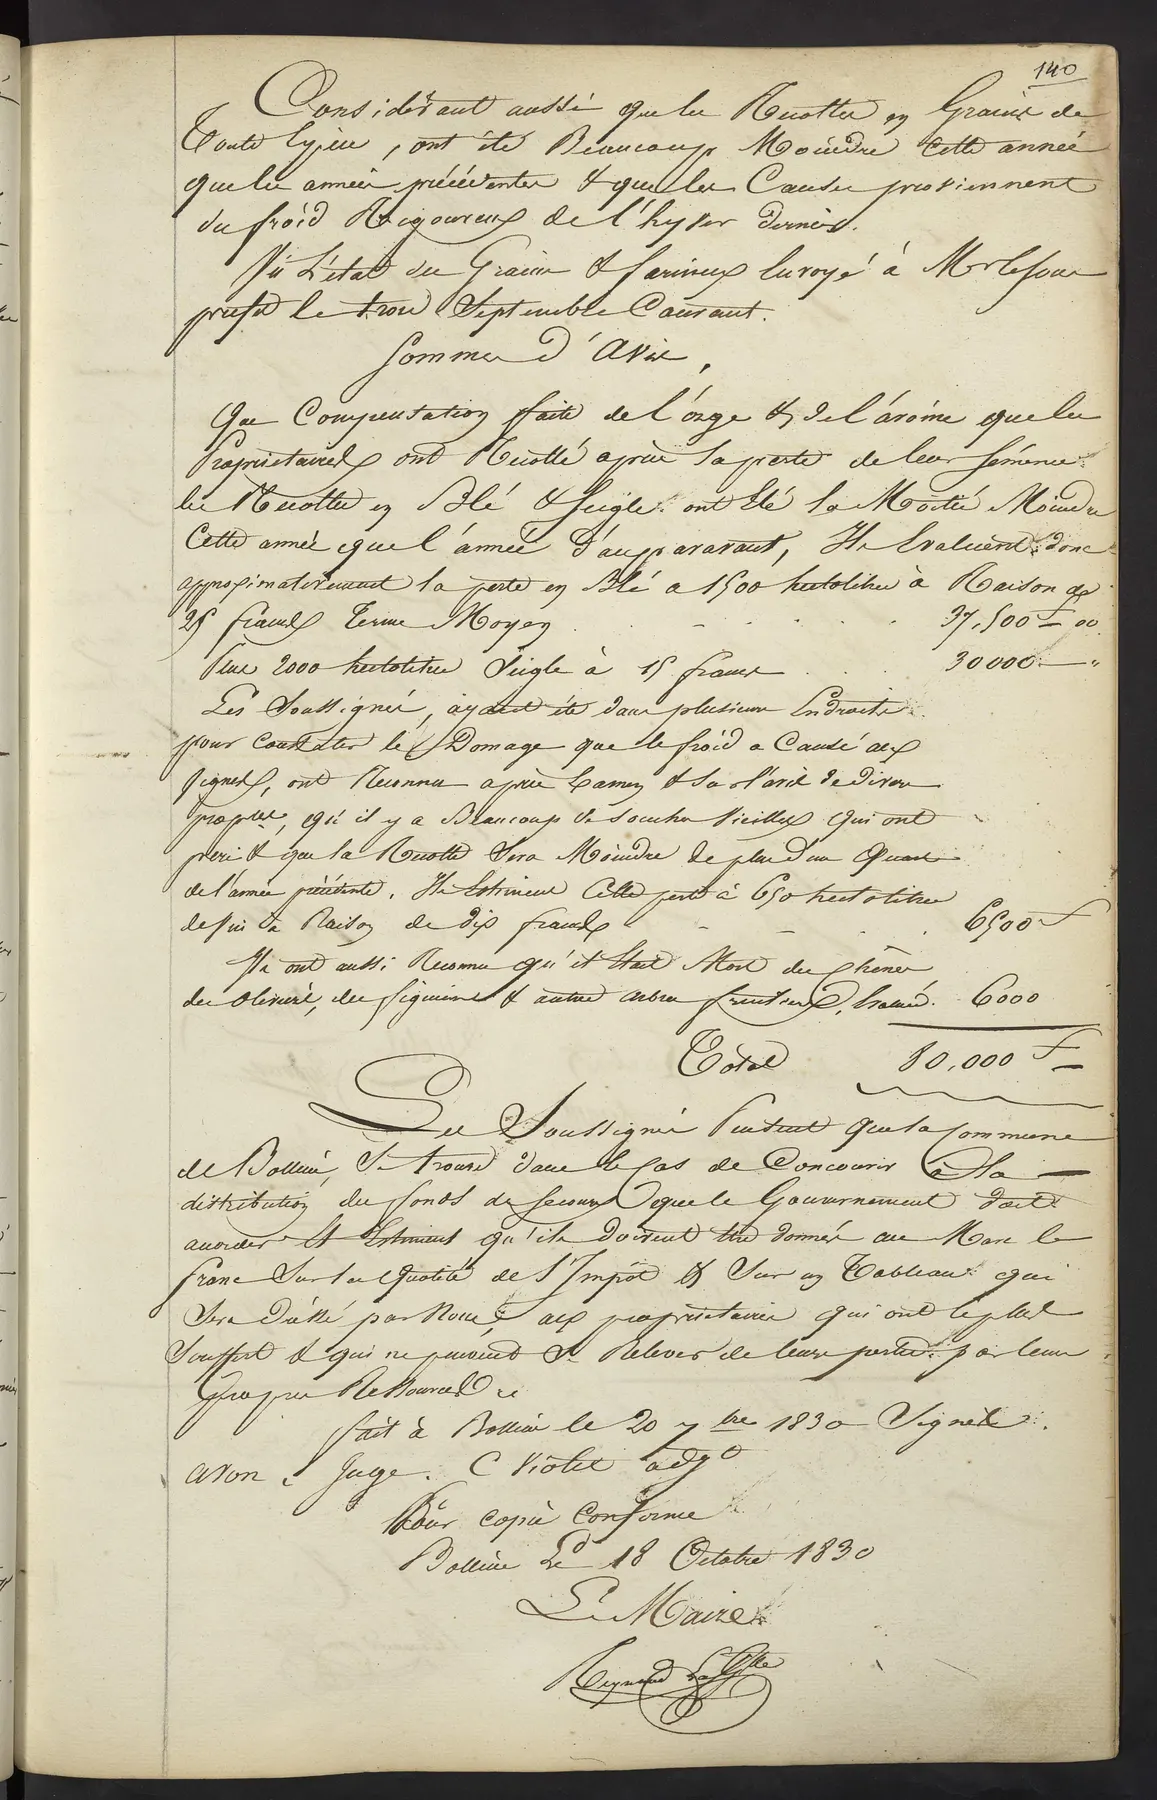 140
Considérant aussi que les Recottes en Grains de
Toute Espèce, ont été Beaucoup Moindre Cette année
que les années précédentes & que les Causes proviennent
du froid Rigoureux de l'hyver dernier.
Vu L'état des Grains & farineux Envoyé à Mr le Sous
prefet le trois Septembre Courant.
Sommes d'Avis,
Que Compensation faite de l'orge & de l'avoine que les
Propriétaires ont Recotté après la perte de leur Sémence
les Recottes en Blé & Seigle ont Eté la Moitié Moindre
Cette année que l'année d'auparavant, Ils Evaluent donc
approximativement la perte en Blé a 1500 hectolitres à Raison de
25 francs Terme Moyen . . . . . 37,500 F 00
Plus 2000 hectolitres Seigle à 15 francs . . 30000 — "
Les Soussignés, ayant été dans plusieurs Endroits
pour Constater le Domage que le froid a Causé aux
Vignes, ont Reconnu après Examen & sur l'avis de divers
proptres, qu'il y a Beaucoup de Souches Vieilles qui ont
peri & que la Recotte Sera Moindre de plus d'un Quart
de l'année précédente. Ils Estiment Cette perte à 650 hectolitres
de Vin à Raison de dix francs . . . . 6500 F
Ils ont aussi Reconnu qu'il Etait Mort des Chênes
des Oliviers, des figuiers & autres arbres fruitiers, Evalués. 6000
Total 80,000 F
Les Soussignés Pensent que la Commune
de Bollène, Se trouve dans le Cas de Concourir à la
distribution des fonds de Secours que le Gouvernement doit
accorder Et Estiment qu'ils doivent être donnés au Marc le
franc Sur la Quotité de l'Impôt & Sur un Tableau qui
Sera Dréssé par Nous, aux propriétaires qui ont le plus
Souffert & qui ne peuvent Se Relever de leurs pertes par leurs
Propres Ressources
fait à Bollène le 20 7bre 1830 Signés
avon, Juge. C Violet adjt
Pour copie Conforme
Bollène Le 18 Octobre 1830
Le Maire
Reynaud